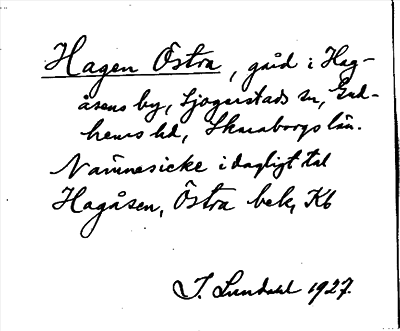 Hagen Östra, gård i Hag-
åsens by, Sjogerstads sn, Gud-
hems hd, Skaraborgs län.
Namnesicke i dagligt tal
Hagåsen, Östra bek, Kb
J. Lundahl 1927.